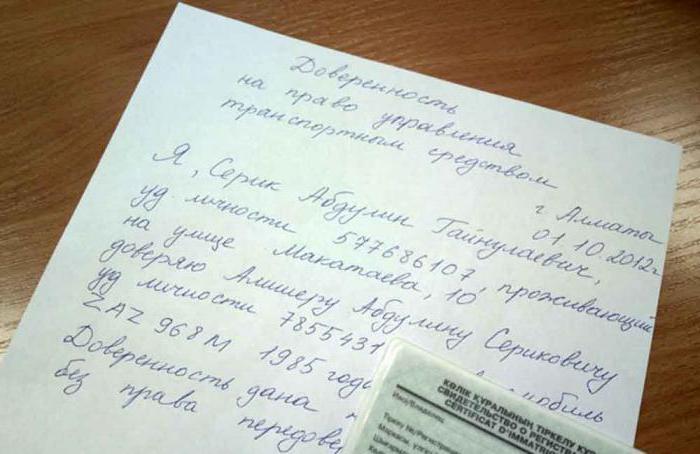 Доверенность
на право управления
транспортным средством
г Алматы
01.10.2012г
Я, Серик Абдулин Гайнулаевич,
уд. личности 577686107, проживающий
на улице Макатаева, 10
доверяю Алишеру Абдулину Сериковичу
уд личности 7855431
ZAZ 968М 1985 года
Доверенность дана
без права передове
КӨЛІК ҚҰРАЛЫНЫҢ ТІРКЕЛУ КУ
СВИДЕТЕЛЬСТВО О РЕГИСТРА
CERTIFICAT D'IMMATRI